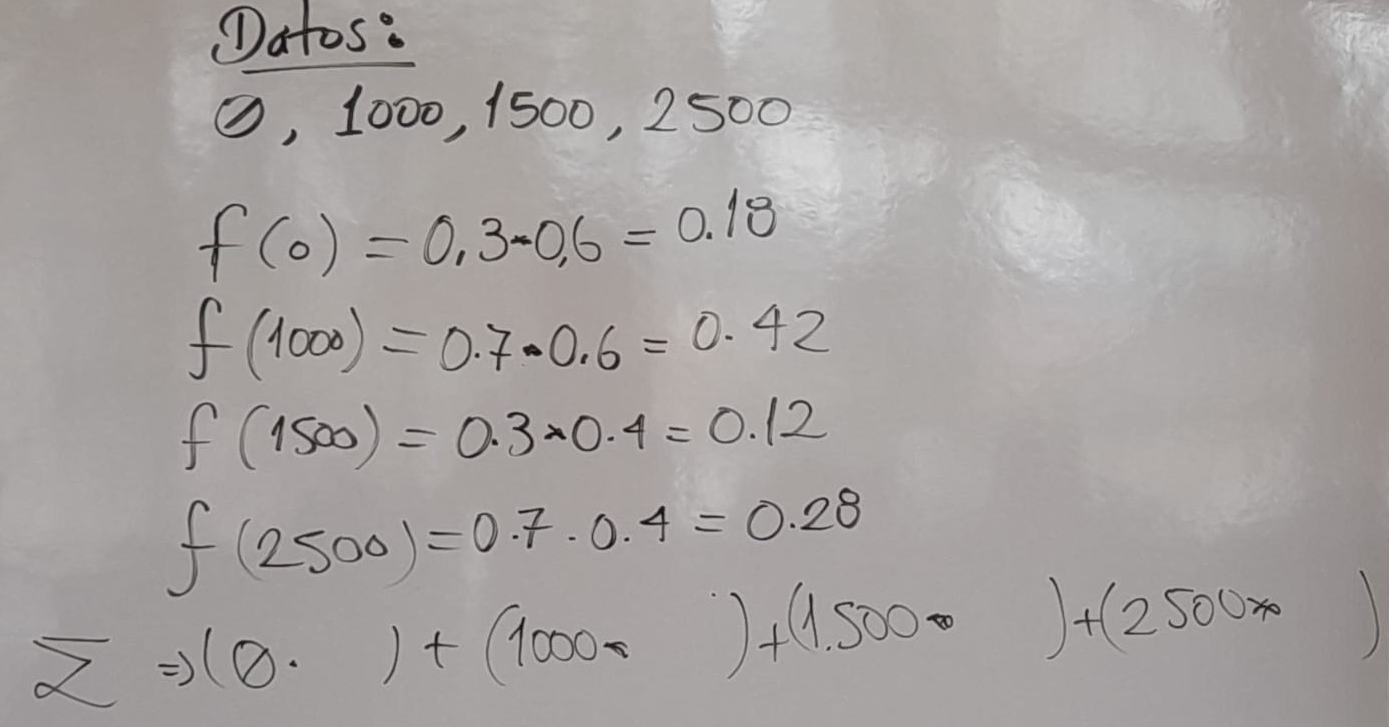 Datos:
0, 1000, 1500, 2500
f(0) = 0,3·0,6 = 0.18
f(1000) = 0.7·0.6 = 0.42
f(1500) = 0.3·0.4 = 0.12
f(2500) = 0.7·0.4 = 0.28
Σ ⇒ (0·   ) + (1000·   ) + (1.500·   ) + (2500·   )